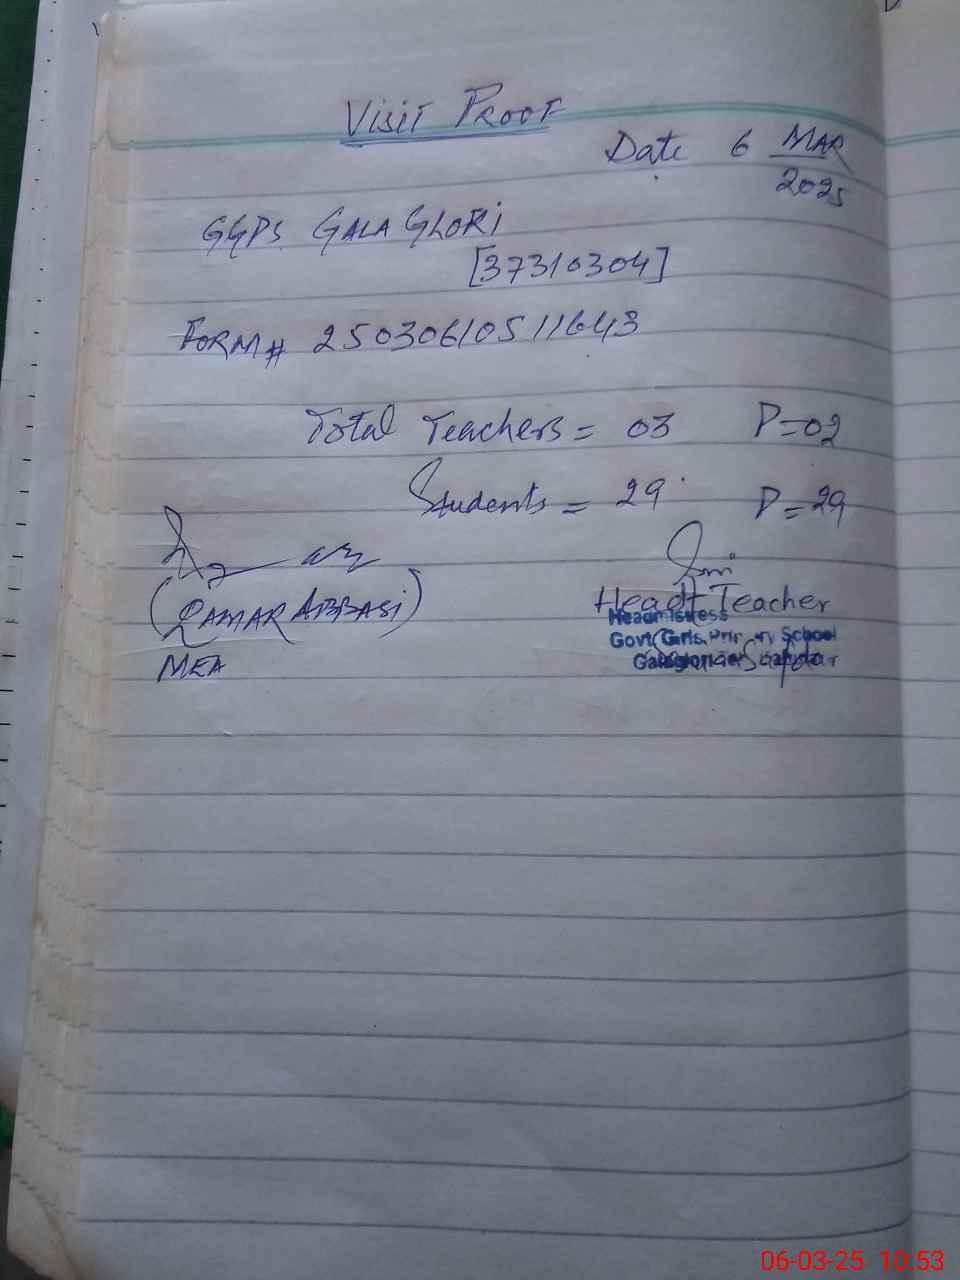 Visit Proof
Date 6 MAR
2025
GGPS GALA GHORI
[37310304]
FORM# 25030610511643
Total Teachers = 03 P=02
Students = 29 P=29
(QAMAR ABBASI)
MEA
Head Teacher
Headmistress
Govt. Girls Primary School
Safdar
06-03-25 10.53